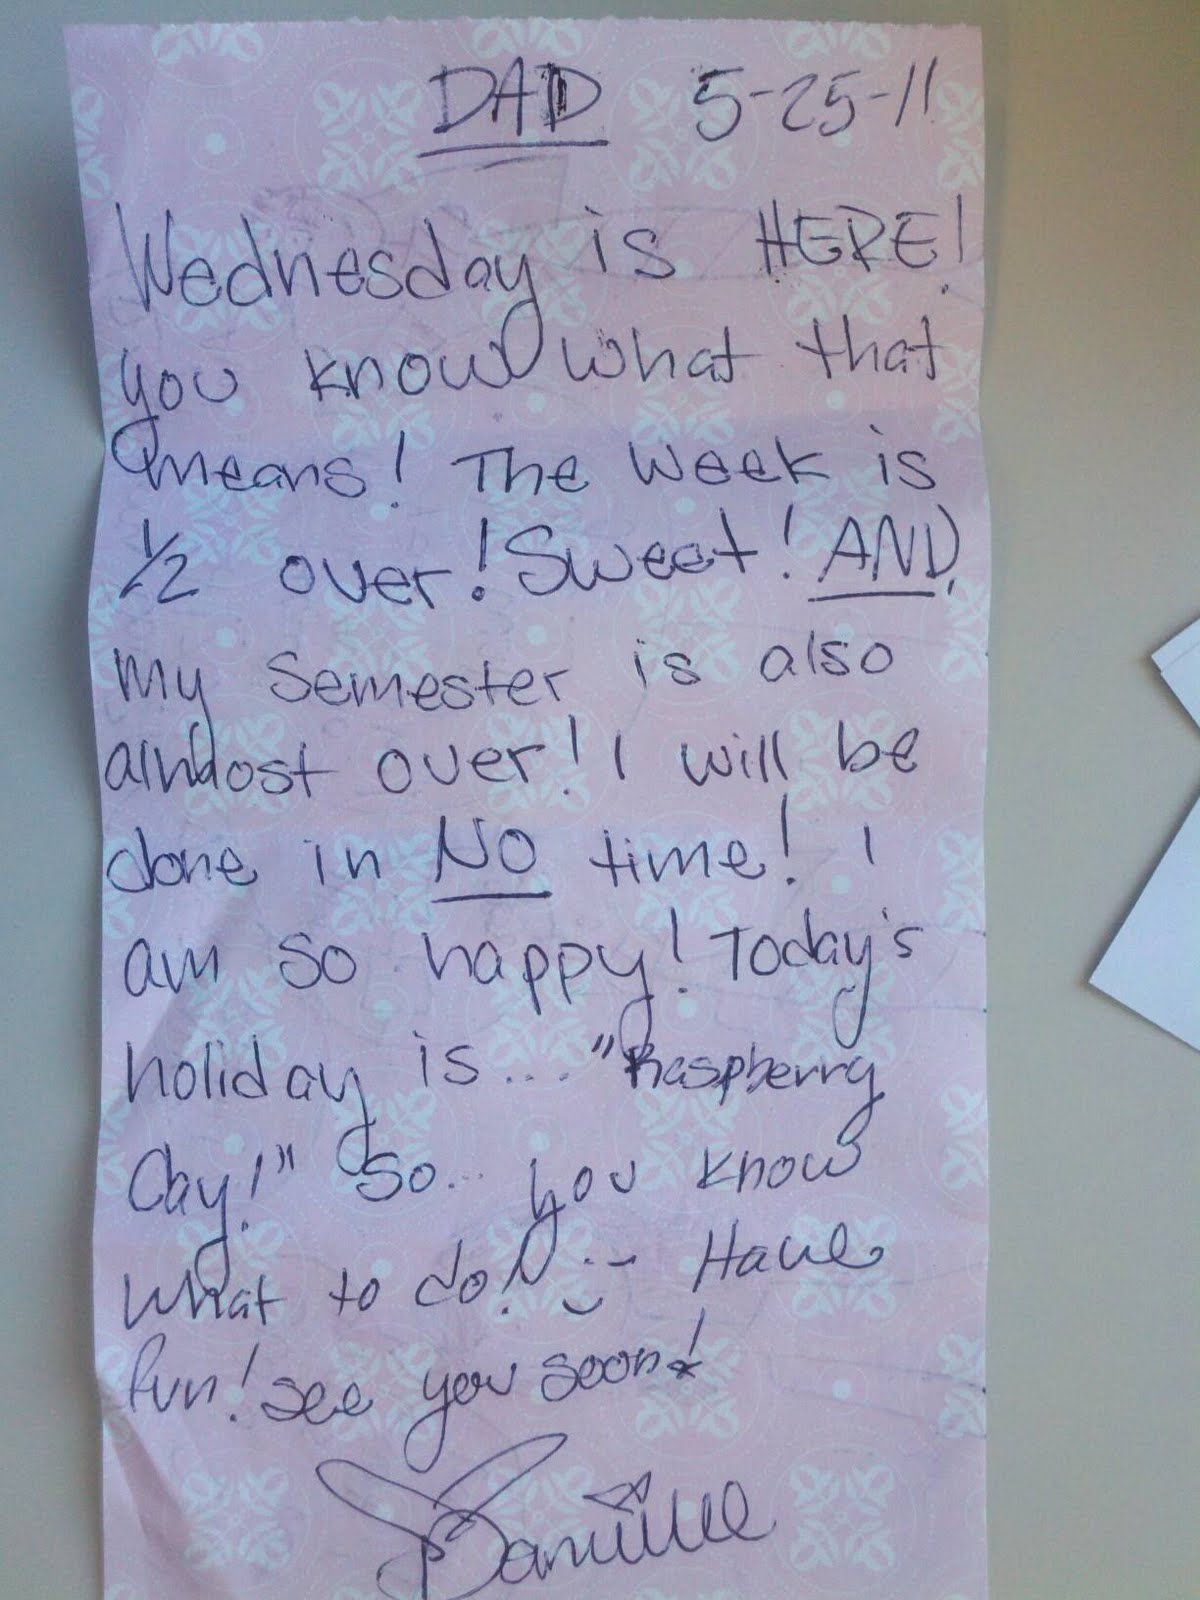 DAD 5-25-11
Wednesday is HERE!
you know what that
means! The week is
1/2 over! Sweet! AND,
my semester is also
almost over! I will be
done in NO time! I
am so happy! Today's
holiday is... "Raspberry
Day!" So... you know
what to do! :-) Have
fun! See you soon!
Danielle